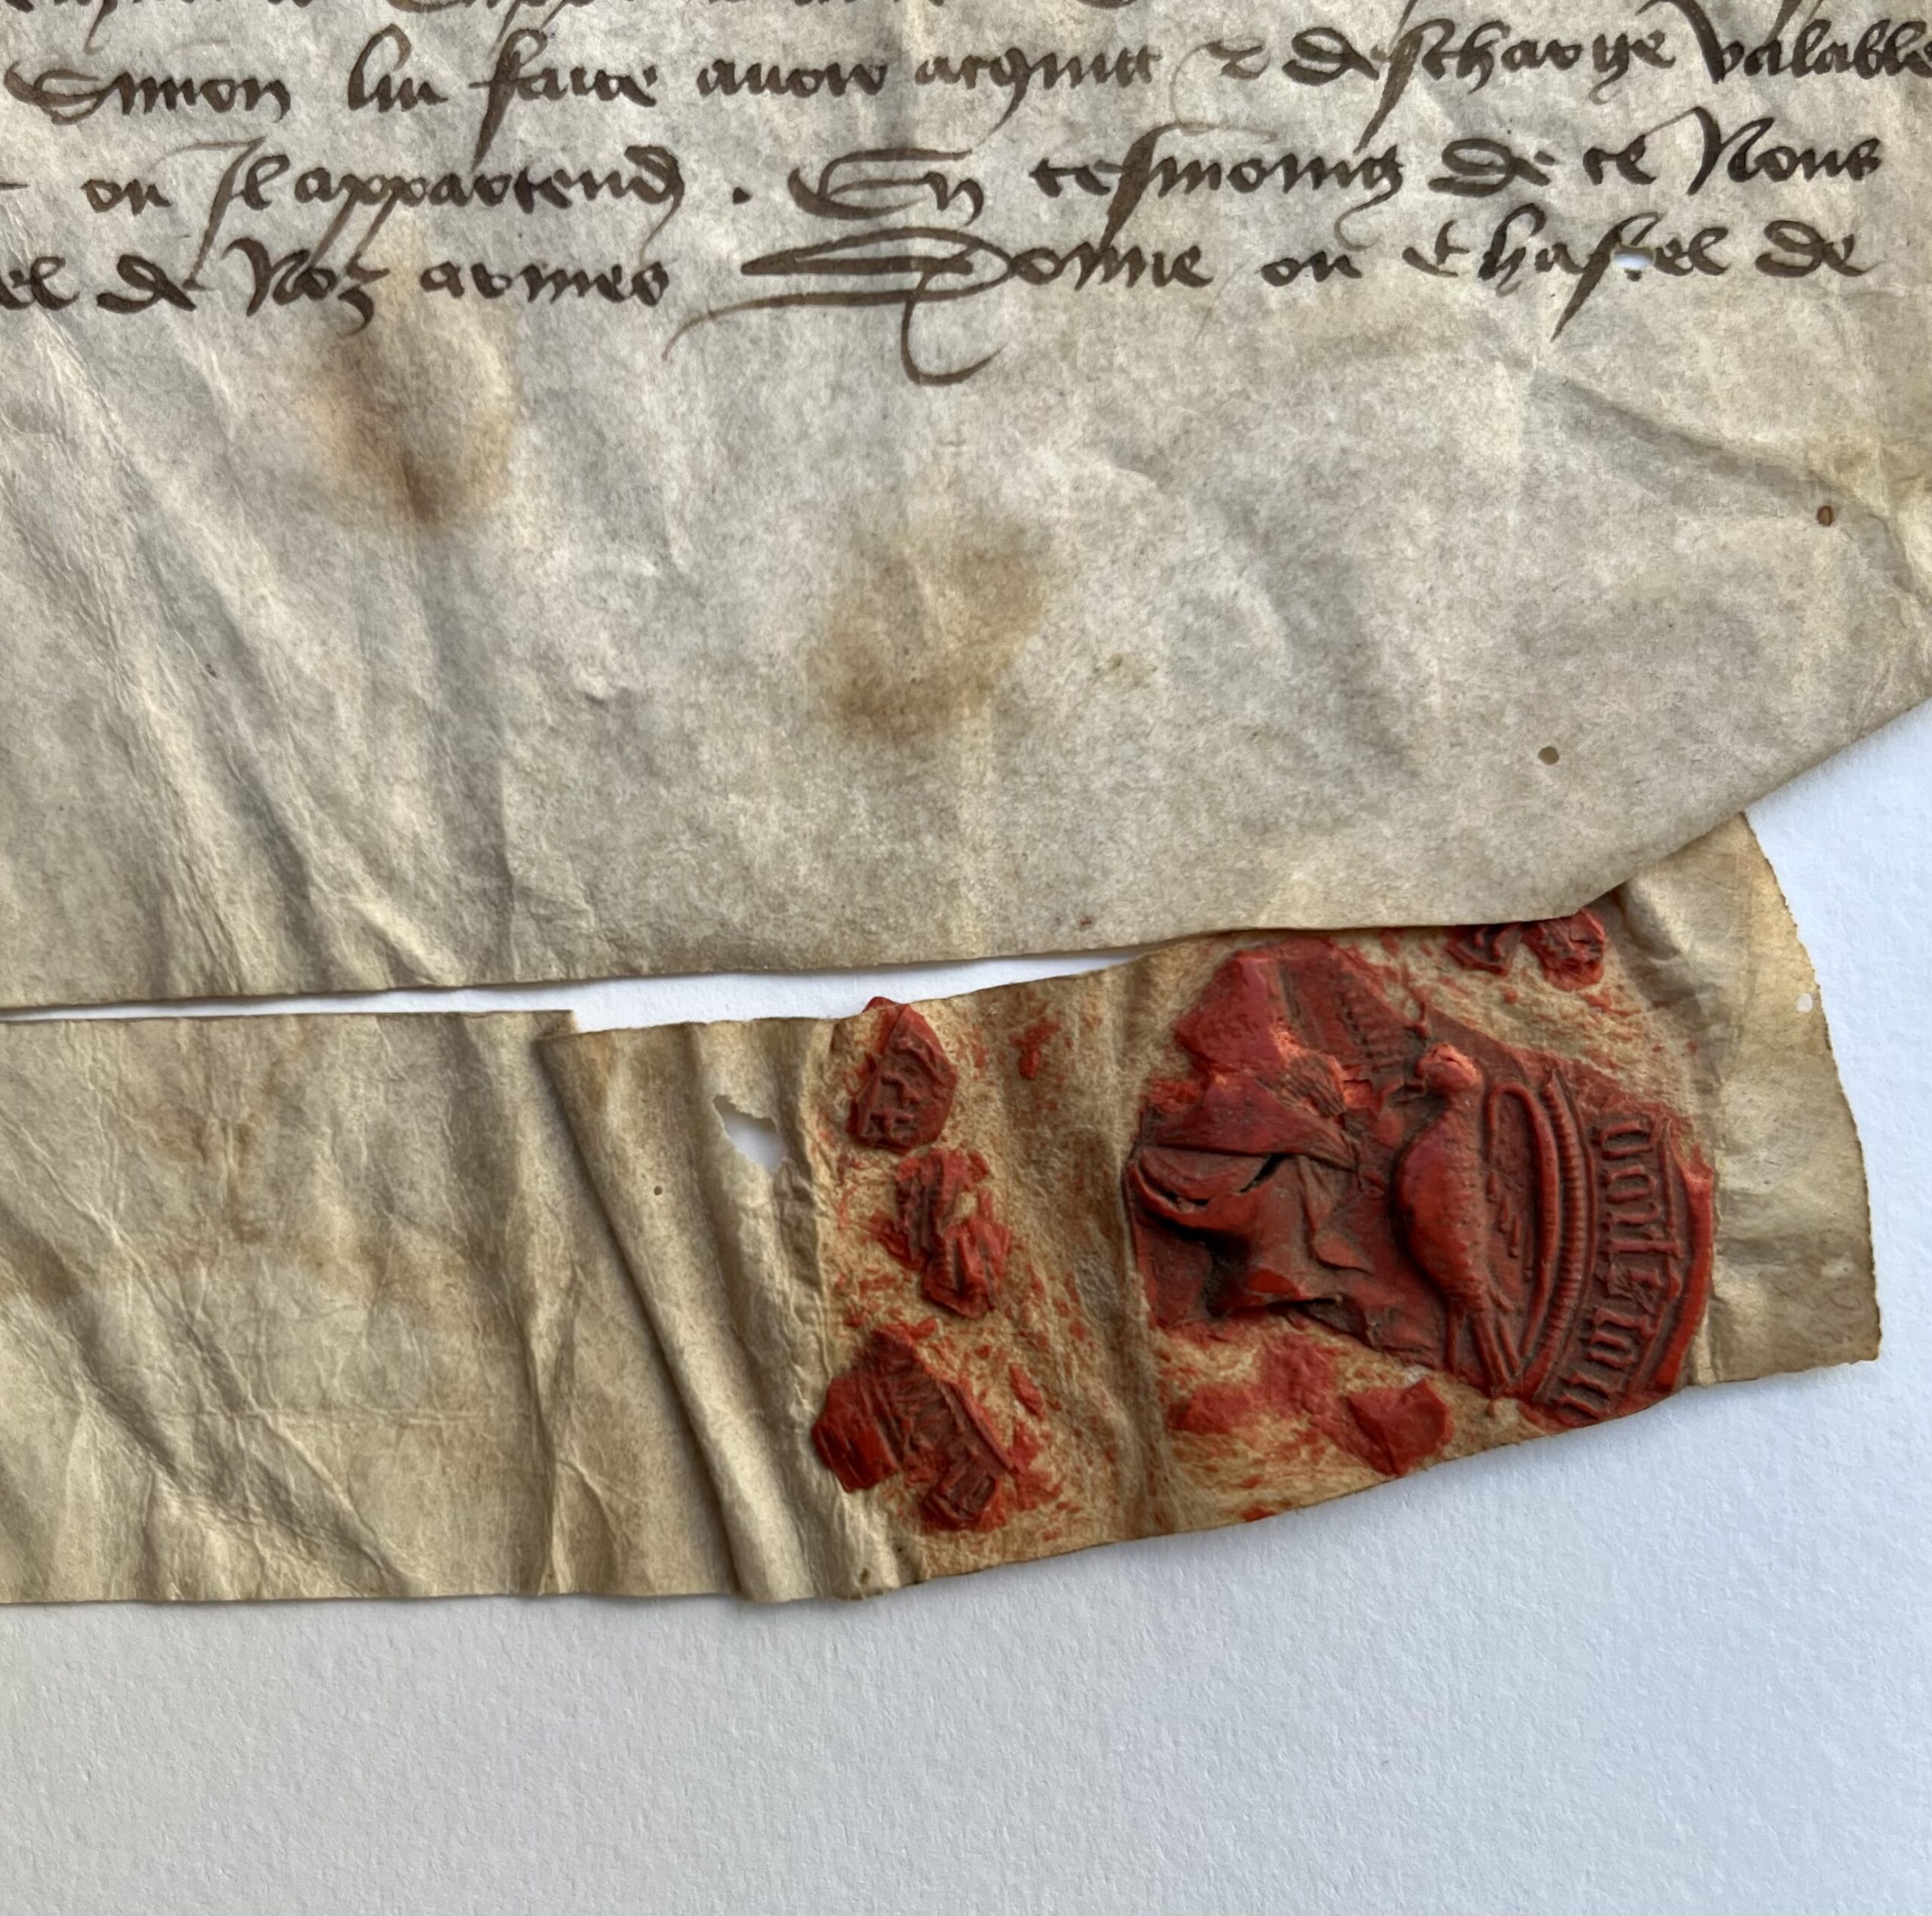 Simon lui faire avoir acquict & descharge valable
ou Il appartendra . En tesmoing de ce Nous
el de Noz armes Donne ou Chastel de